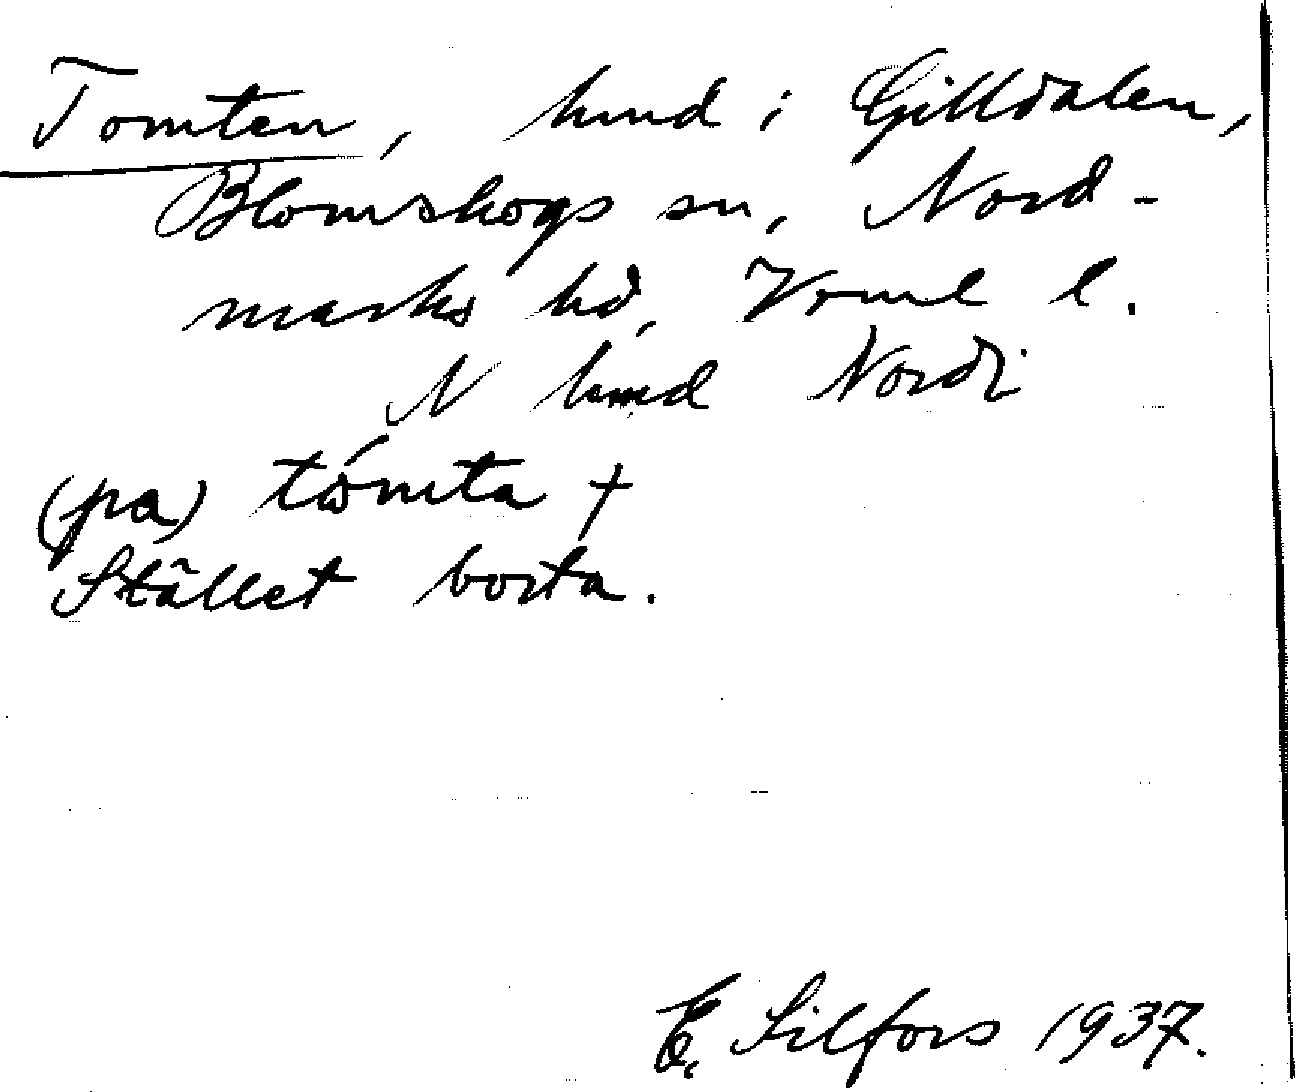 Tomten, hmd i Gilldalen,
Blomskogs sn, Nord-
marks hd, Vrml l.
N hmd Nordi
(pa) tómta +
Stället borta.
E. Silfors 1937.